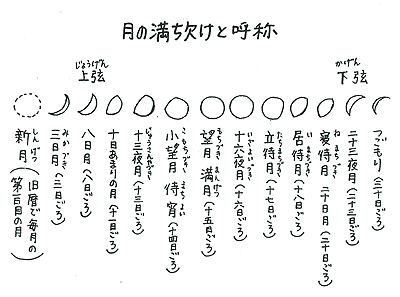 月の満ち欠けと呼称
じょうげん
上弦
かげん
下弦
しんげつ
新月(旧暦で毎月の
第一日の月)
みかづき
三日月(三日ごろ)
八日月(八日ごろ)
十日あまりの月(十一日ごろ)
じゅうさんやづき
十三夜月(十三日ごろ)
こもちづき まちよい
小望月 待宵(十四日ごろ)
もちづき まんげつ
望月 満月(十五日ごろ)
いざよいづき
十六夜月(十六日ごろ)
たちまちづき
立待月(十七日ごろ)
いまちづき
居待月(十八日ごろ)
ねまちづき
寝待月 二十日月(二十日ごろ)
二十三夜月(二十三日ごろ)
つごもり(三十日ごろ)